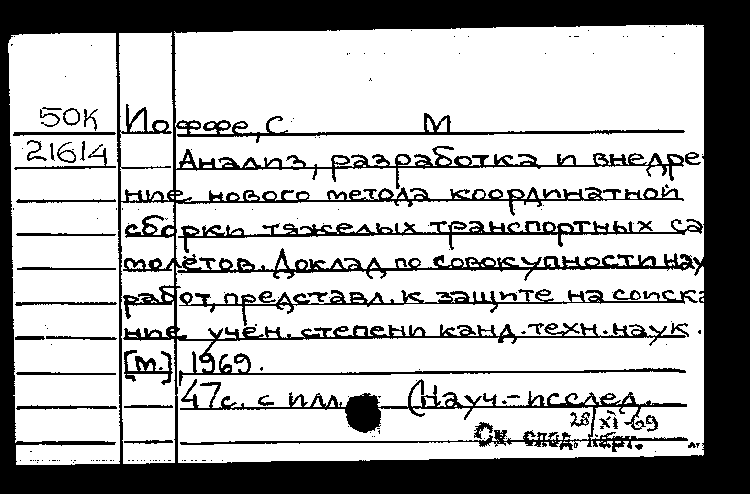 50К Иоффе, С М
21614 Анализ, разработка и внедре
ние нового метода координатной
сборки тяжелых транспортных са
молётов. Доклад по совокупности нау
работ, представл. к защите на соиска
ние учён. степени канд. техн. наук.
[м.], 1969.
47с. с илл. (Науч.-исслед.
28/XI-69
См. след. карт.